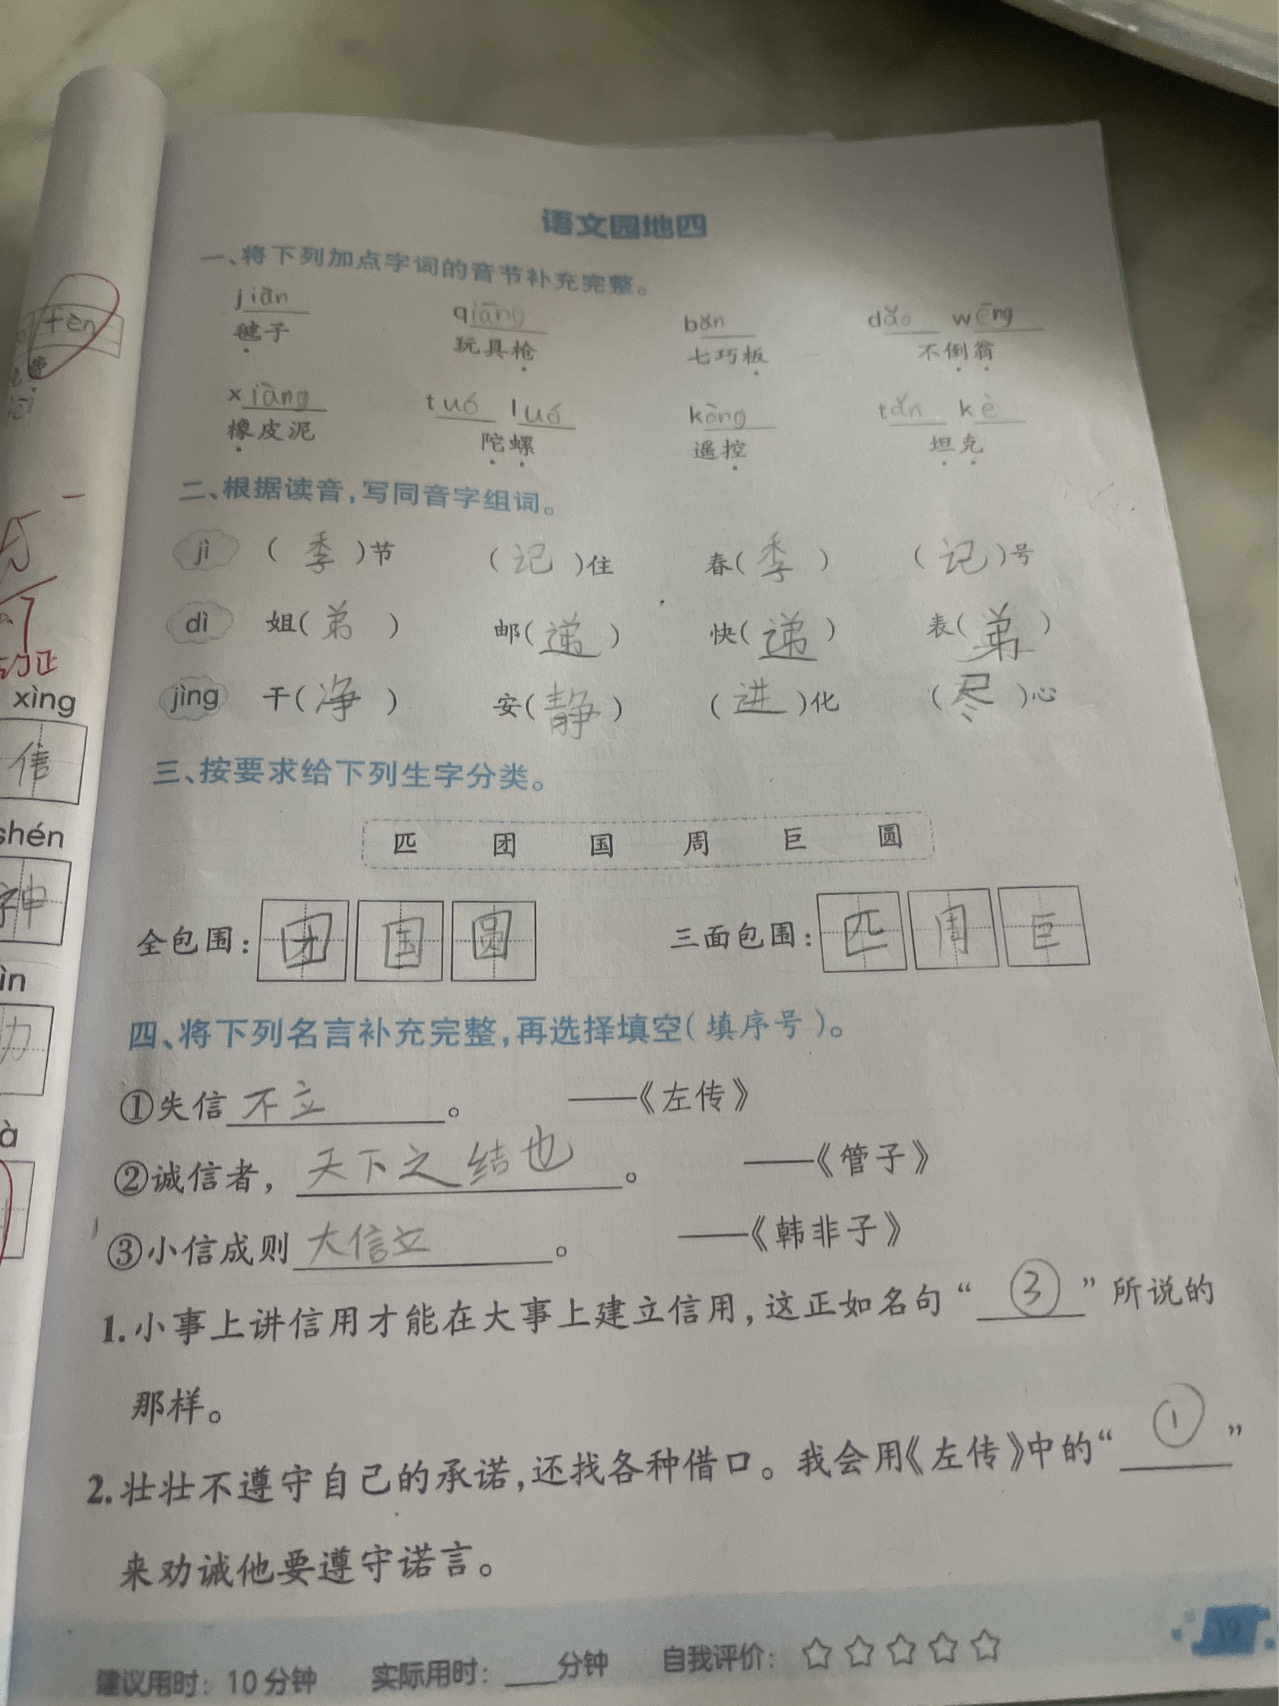 语文园地四
一、将下列加点字词的音节补充完整。
jiàn qiāng bǎn dǎo wēng
毽子 玩具枪 七巧板 不倒翁
xiàng tuó luó kòng tǎn kè
橡皮泥 陀螺 遥控 坦克
二、根据读音,写同音字组词。
jì (季)节 (记)住 春(季) (记)号
dì 姐(弟) 邮(递) 快(递) 表(弟)
jìng 干(净) 安(静) (进)化 (尽)心
三、按要求给下列生字分类。
匹 团 国 周 巨 圆
全包围: 团 国 圆 三面包围: 匹 周 巨
四、将下列名言补充完整,再选择填空(填序号)。
①失信不立。 ——《左传》
②诚信者,天下之结也。 ——《管子》
③小信成则大信立。 ——《韩非子》
1.小事上讲信用才能在大事上建立信用,这正如名句“③”所说的
那样。
2.壮壮不遵守自己的承诺,还找各种借口。我会用《左传》中的“①”
来劝诫他要遵守诺言。
建议用时:10分钟 实际用时:___分钟 自我评价:☆☆☆☆☆
19
fèn
xìng
信
shén
神
ìn
力
à